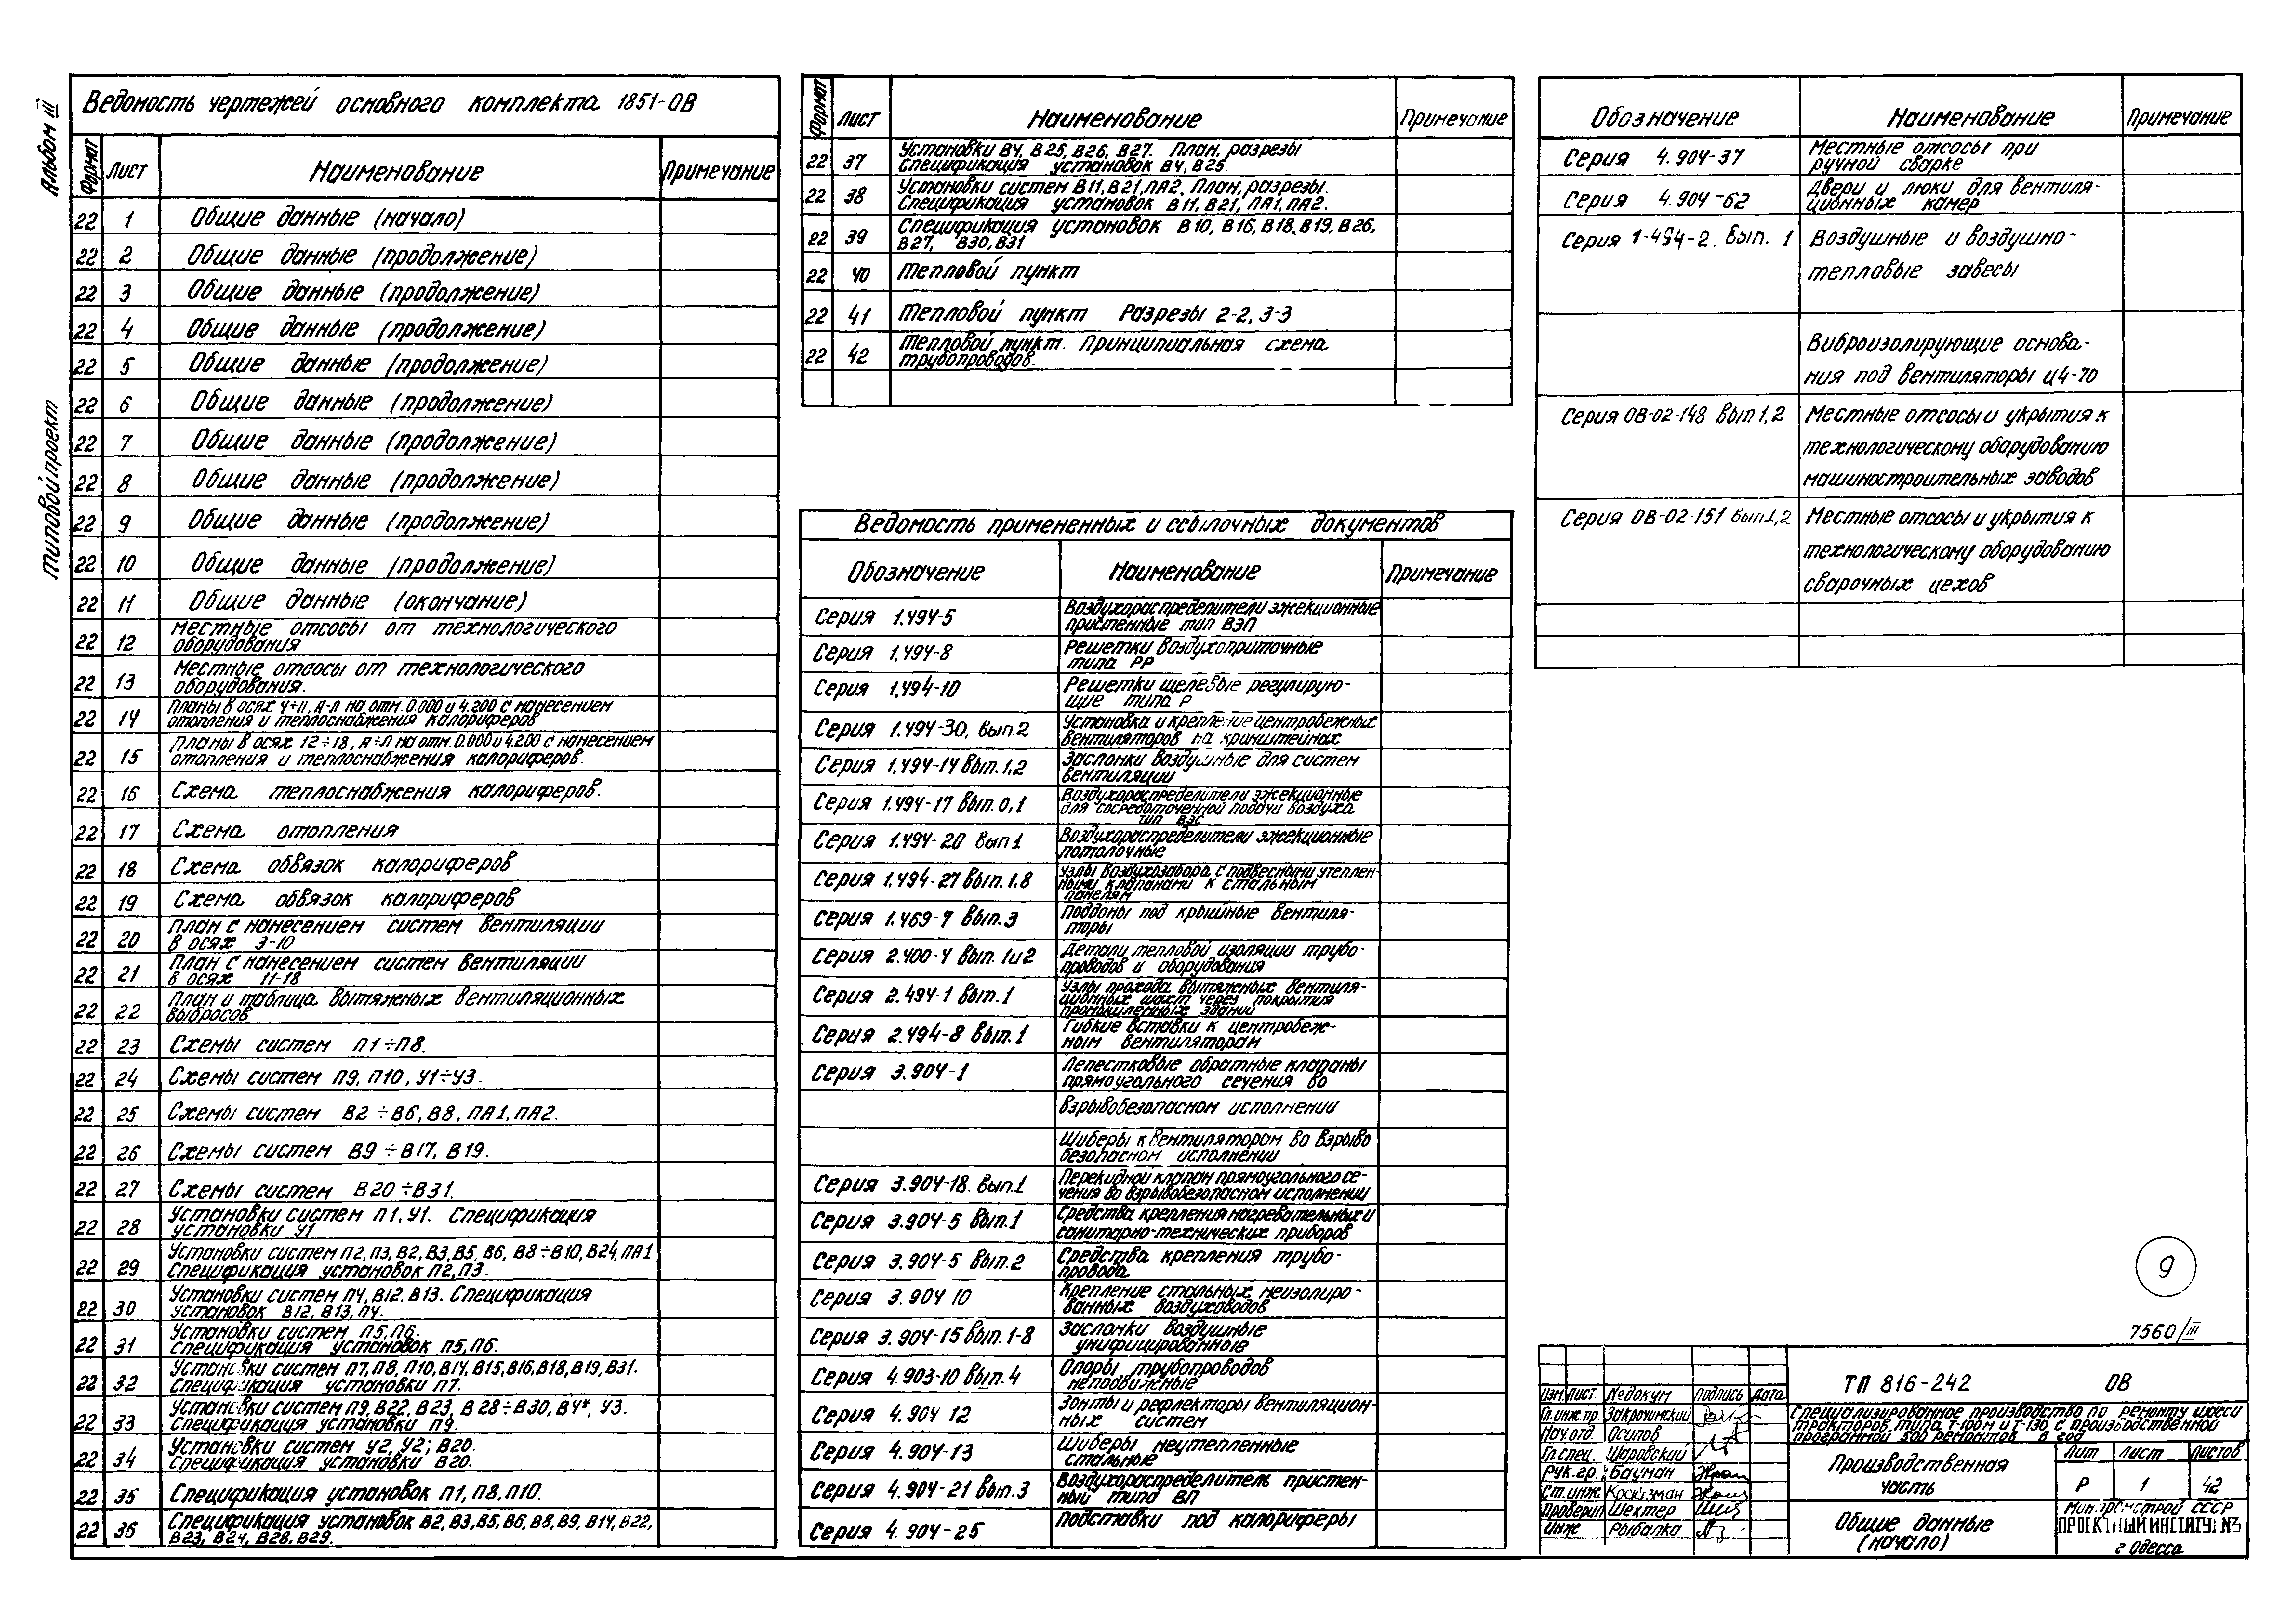 Альбом III
Типовой проект
Ведомость чертежей основного комплекта 1851-ОВ
Формат Лист Наименование Примечание
22 1 Общие данные (начало)
22 2 Общие данные (продолжение)
22 3 Общие данные (продолжение)
22 4 Общие данные (продолжение)
22 5 Общие данные (продолжение)
22 6 Общие данные (продолжение)
22 7 Общие данные (продолжение)
22 8 Общие данные (продолжение)
22 9 Общие данные (продолжение)
22 10 Общие данные (продолжение)
22 11 Общие данные (окончание)
22 12 Местные отсосы от технологического
оборудования
22 13 Местные отсосы от технологического
оборудования.
22 14 Планы в осях 4÷11, А-Л на отм. 0.000 и 4.200 с нанесением
отопления и теплоснабжения калориферов
22 15 Планы в осях 12÷18, А÷Л на отм. 0.000 и 4.200 с нанесением
отопления и теплоснабжения калориферов.
22 16 Схема теплоснабжения калориферов.
22 17 Схема отопления
22 18 Схема обвязок калориферов
22 19 Схема обвязок калориферов
22 20 План с нанесением систем вентиляции
в осях 3-10
22 21 План с нанесением систем вентиляции
в осях 11-18
22 22 План и таблица вытяжных вентиляционных
выбросов
22 23 Схемы систем П1÷П8.
22 24 Схемы систем П9, П10, У1÷У3.
22 25 Схемы систем В2÷В6, В8, ПА1, ПА2.
22 26 Схемы систем В9÷В17, В19.
22 27 Схемы систем В20÷В31.
22 28 Установки систем П1, У1. Спецификация
установки У1
22 29 Установки систем П2, П3, В2, В3, В5, В6, В8÷В10, В24, ПА1
Спецификация установок П2, П3.
22 30 Установки систем П4, В12, В13. Спецификация
установок В12, В13, П4.
22 31 Установки систем П5, П6.
Спецификация установок П5, П6.
22 32 Установки систем П7, П8, П10, В14, В15, В16, В18, В19, В31.
Спецификация установки П7.
22 33 Установки систем П9, В22, В23, В28÷В30, В4*, У3.
Спецификация установки П9.
22 34 Установки систем У2, У2; В20.
Спецификация установки В20.
22 35 Спецификация установок П1, П8, П10.
22 36 Спецификация установок В2, В3, В5, В6, В8, В9, В14, В22,
В23, В24, В28, В29.
Формат Лист Наименование Примечание
22 37 Установки В4, В25, В26, В27. План, разрезы
Спецификация установок В4, В25.
22 38 Установки систем В11, В21, ПА2. План, разрезы.
Спецификация установок В11, В21, ПА1, ПА2.
22 39 Спецификация установок В10, В16, В18, В19, В26,
В27, В30, В31
22 40 Тепловой пункт
22 41 Тепловой пункт Разрезы 2-2, 3-3
22 42 Тепловой пункт. Принципиальная схема
трубопроводов.
Ведомость примененных и ссылочных документов
Обозначение Наименование Примечание
Серия 1.494-5 Воздухораспределители эжекционные
пристенные тип ВЭП
Серия 1.494-8 Решетки воздухоприточные
типа РР
Серия 1.494-10 Решетки щелевые регулирую-
щие типа Р
Серия 1.494-30, вып.2 Установка и крепление центробежных
вентиляторов на кронштейнах
Серия 1.494-14 вып.1,2 Заслонки воздушные для систем
вентиляции
Серия 1.494-17 вып.0,1 Воздухораспределители эжекционные
для сосредоточенной подачи воздуха
тип ВЭС
Серия 1.494-20 вып1 Воздухораспределители эжекционные
потолочные
Серия 1.494-27 вып.1.8 Узлы воздухозабора с подвесными утеплен-
ными клапанами к стальным
панелям
Серия 1.469-7 вып.3 Поддоны под крышные вентиля-
торы
Серия 2.400-4 вып.1и2 Детали тепловой изоляции трубо-
проводов и оборудования
Серия 2.494-1 вып.1 Узлы прохода вытяжных вентиля-
ционных шахт через покрытия
промышленных зданий
Серия 2.494-8 вып.1 Гибкие вставки к центробеж-
ным вентиляторам
Серия 3.904-1 Лепестковые обратные клапаны
прямоугольного сечения во
взрывобезопасном исполнении
Шиберы к вентиляторам во взрыво
безопасном исполнении
Серия 3.904-18. вып.1 Перекидной клапан прямоугольного се-
чения во взрывобезопасном исполнении
Серия 3.904-5 вып.1 Средства крепления нагревательных и
санитарно-технических приборов
Серия 3.904-5 вып.2 Средства крепления трубо-
провода
Серия 3.904 10 Крепление стальных неизолиро-
ванных воздуховодов
Серия 3.904-15 вып.1-8 Заслонки воздушные
унифицированные
Серия 4.903-10 вып.4 Опоры трубопроводов
неподвижные
Серия 4.904 12 Зонты и рефлекторы вентиляцион-
ных систем
Серия 4.904-13 Шиберы неутепленные
стальные
Серия 4.904-21 вып.3 Воздухораспределитель пристен-
ный типа ВП
Серия 4.904-25 Подставки под калориферы
Обозначение Наименование Примечание
Серия 4.904-37 Местные отсосы при
ручной сварке
Серия 4.904-62 Двери и люки для вентиля-
ционных камер
Серия 1-494-2. вып. 1 Воздушные и воздушно-
тепловые завесы
Виброизолирующие основа-
ния под вентиляторы Ц4-70
Серия ОВ-02-148 вып 1,2 Местные отсосы и укрытия к
технологическому оборудованию
машиностроительных заводов
Серия ОВ-02-151 вып 1,2 Местные отсосы и укрытия к
технологическому оборудованию
сварочных цехов
9
7560/III
ТП 816-242 ОВ
Изм. Лист №докум Подпись Дата
Гл.инж.пр. Закрочимский
Нач.отд. Осипов
Гл.спец. Шаровский
Рук.гр. Бацман
Ст.инж.
Проверил Шехтер
Инж Рыбалка
Специализированное производство по ремонту шасси
тракторов типа Т-100м и Т-130 с производственной
программой 500 ремонтов в год
Производственная
часть
Лит Лист Листов
Р 1 42
Общие данные
(начало)
Минпромстрой СССР
ПРОЕКТНЫЙ ИНСТИТУТ №3
г Одесса